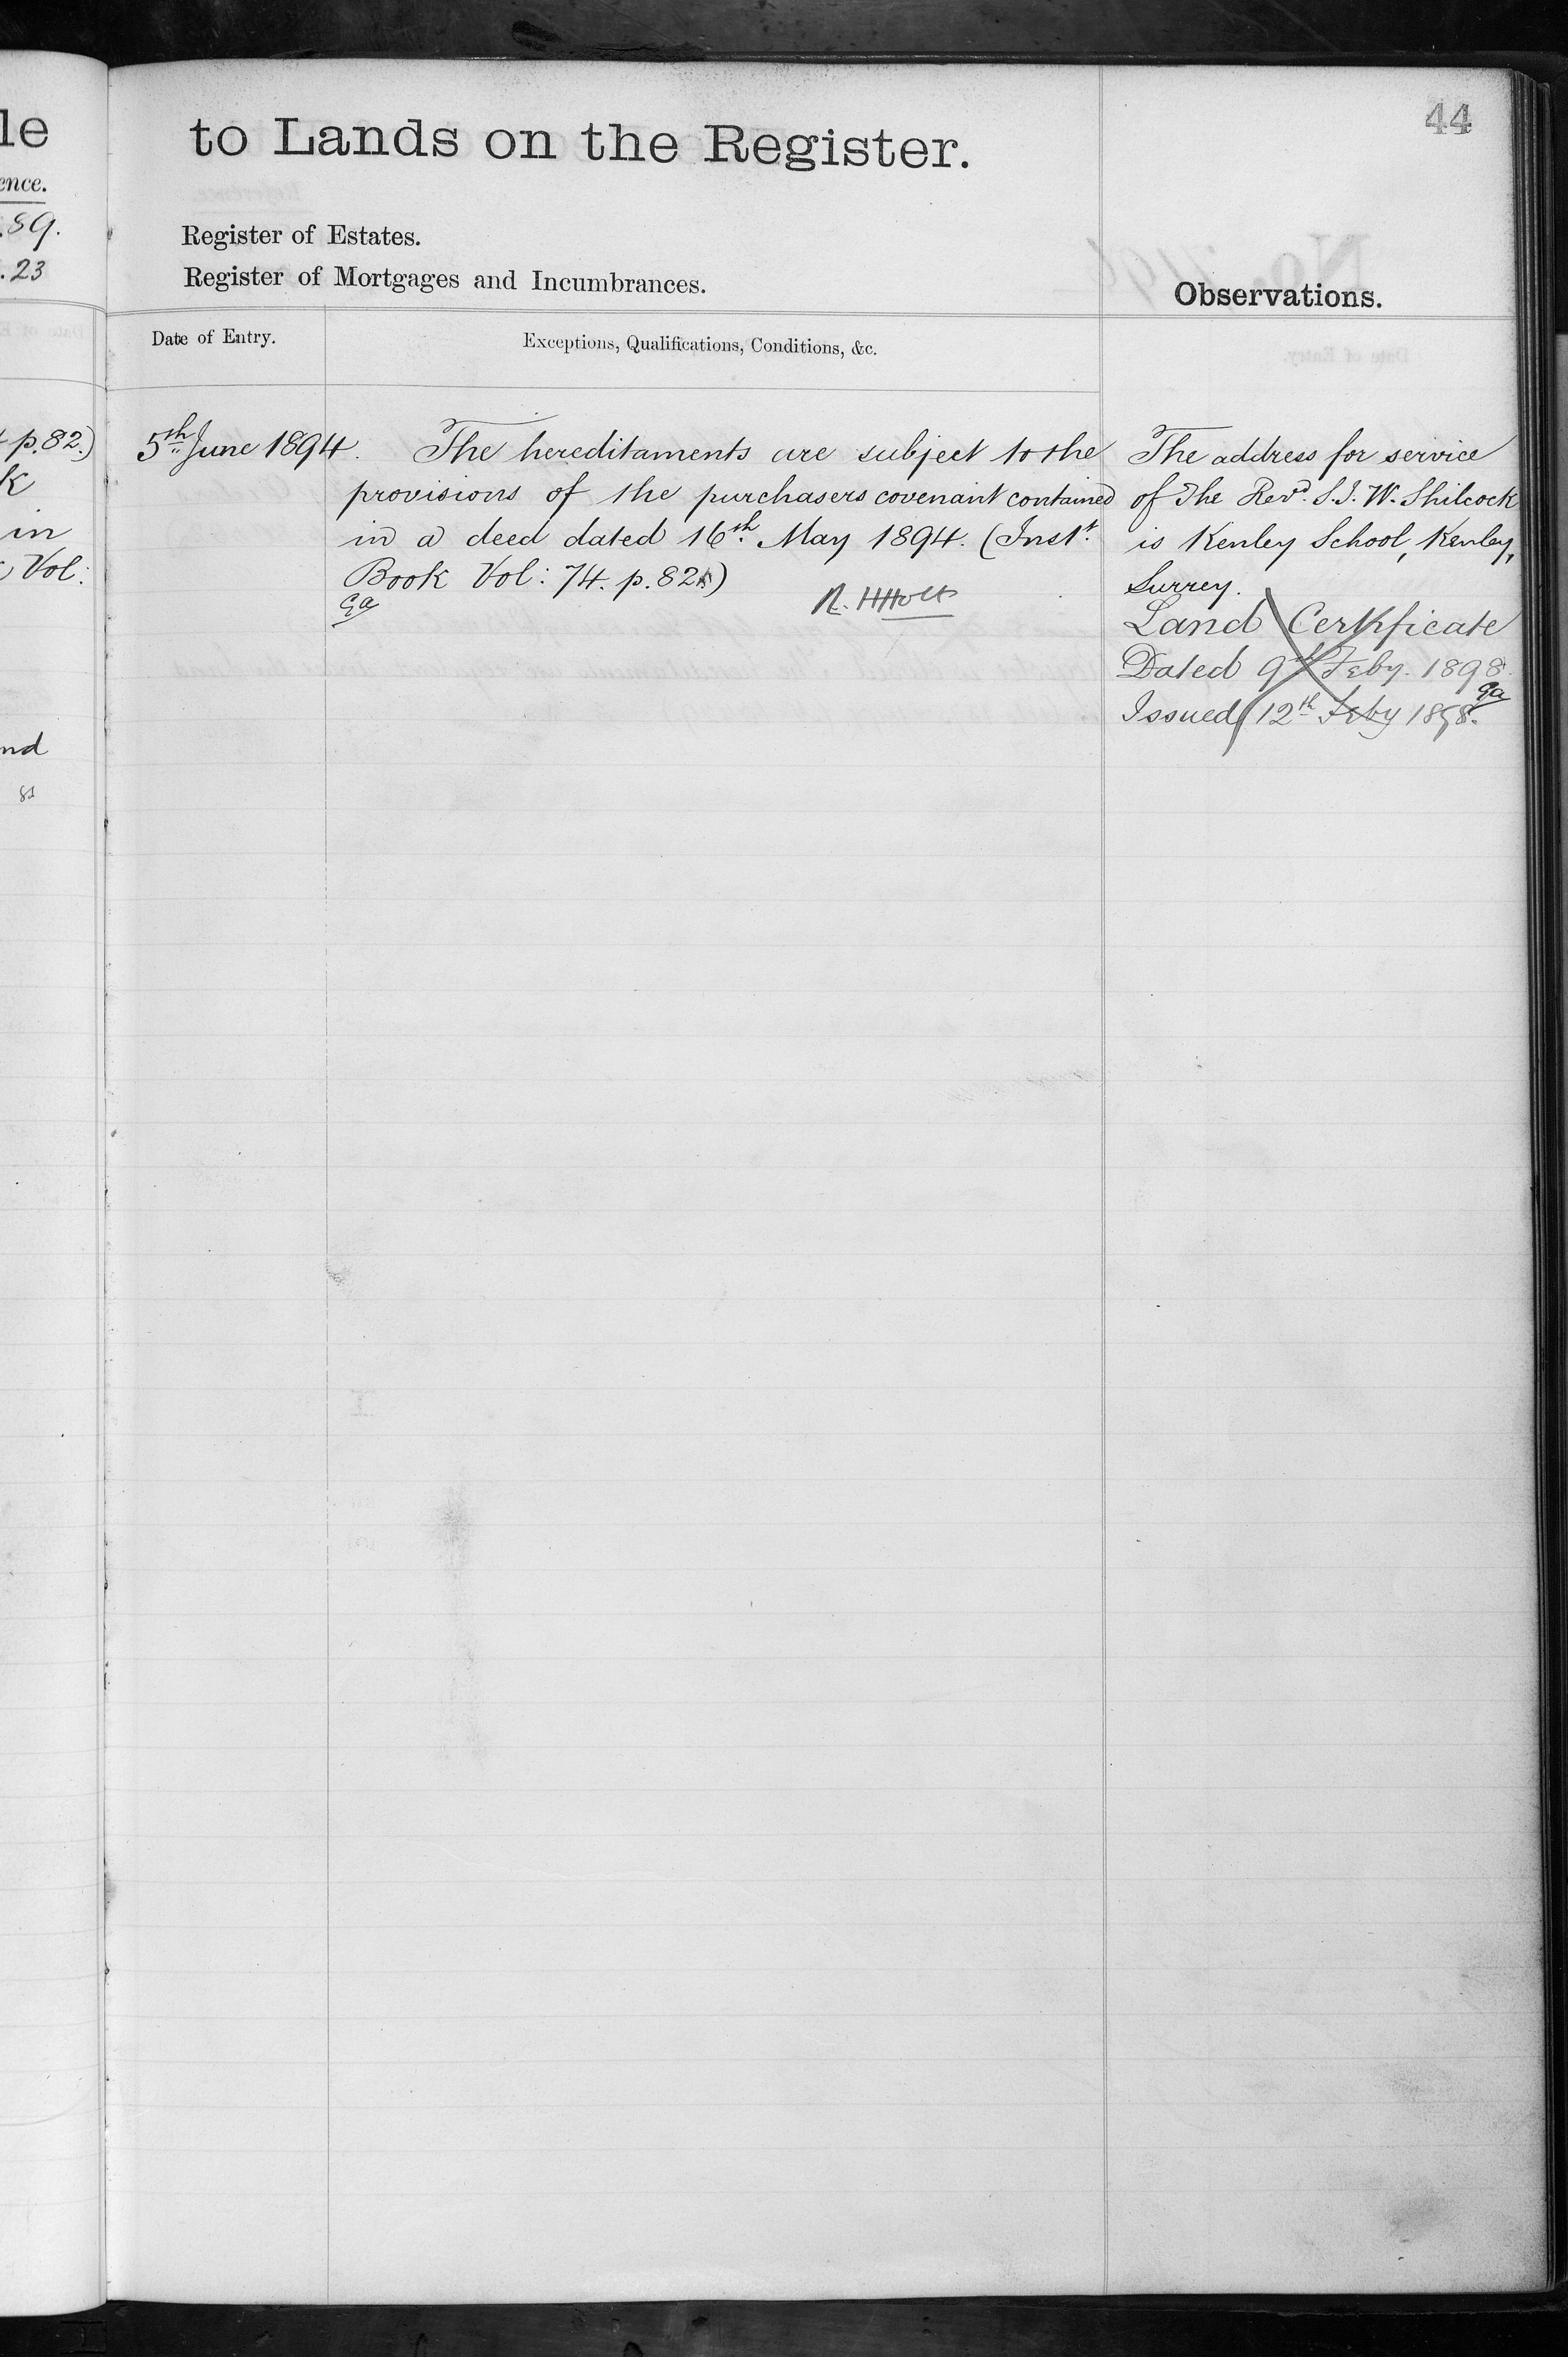 le
ence.
.89.
.23
p.82.)
k
in
Vol:
nd
44
to Lands on the Register.
Register of Estates.
Register of Mortgages and Incumbrances.
Observations.
Date of Entry.
Exceptions, Qualifications, Conditions, &c.
5th June 1894.
The hereditaments are subject to the
provisions of the purchasers covenant contained
in a deed dated 16th May 1894. (Instt
Book Vol: 74. p. 82.)
R. H Holt
The address for service
of The Revd. S. J. W. Shilcock
is Kenley School, Kenley,
Surrey.
Land Certificate
Dated 9th Feby. 1898
Issued 12th Feby 1898.